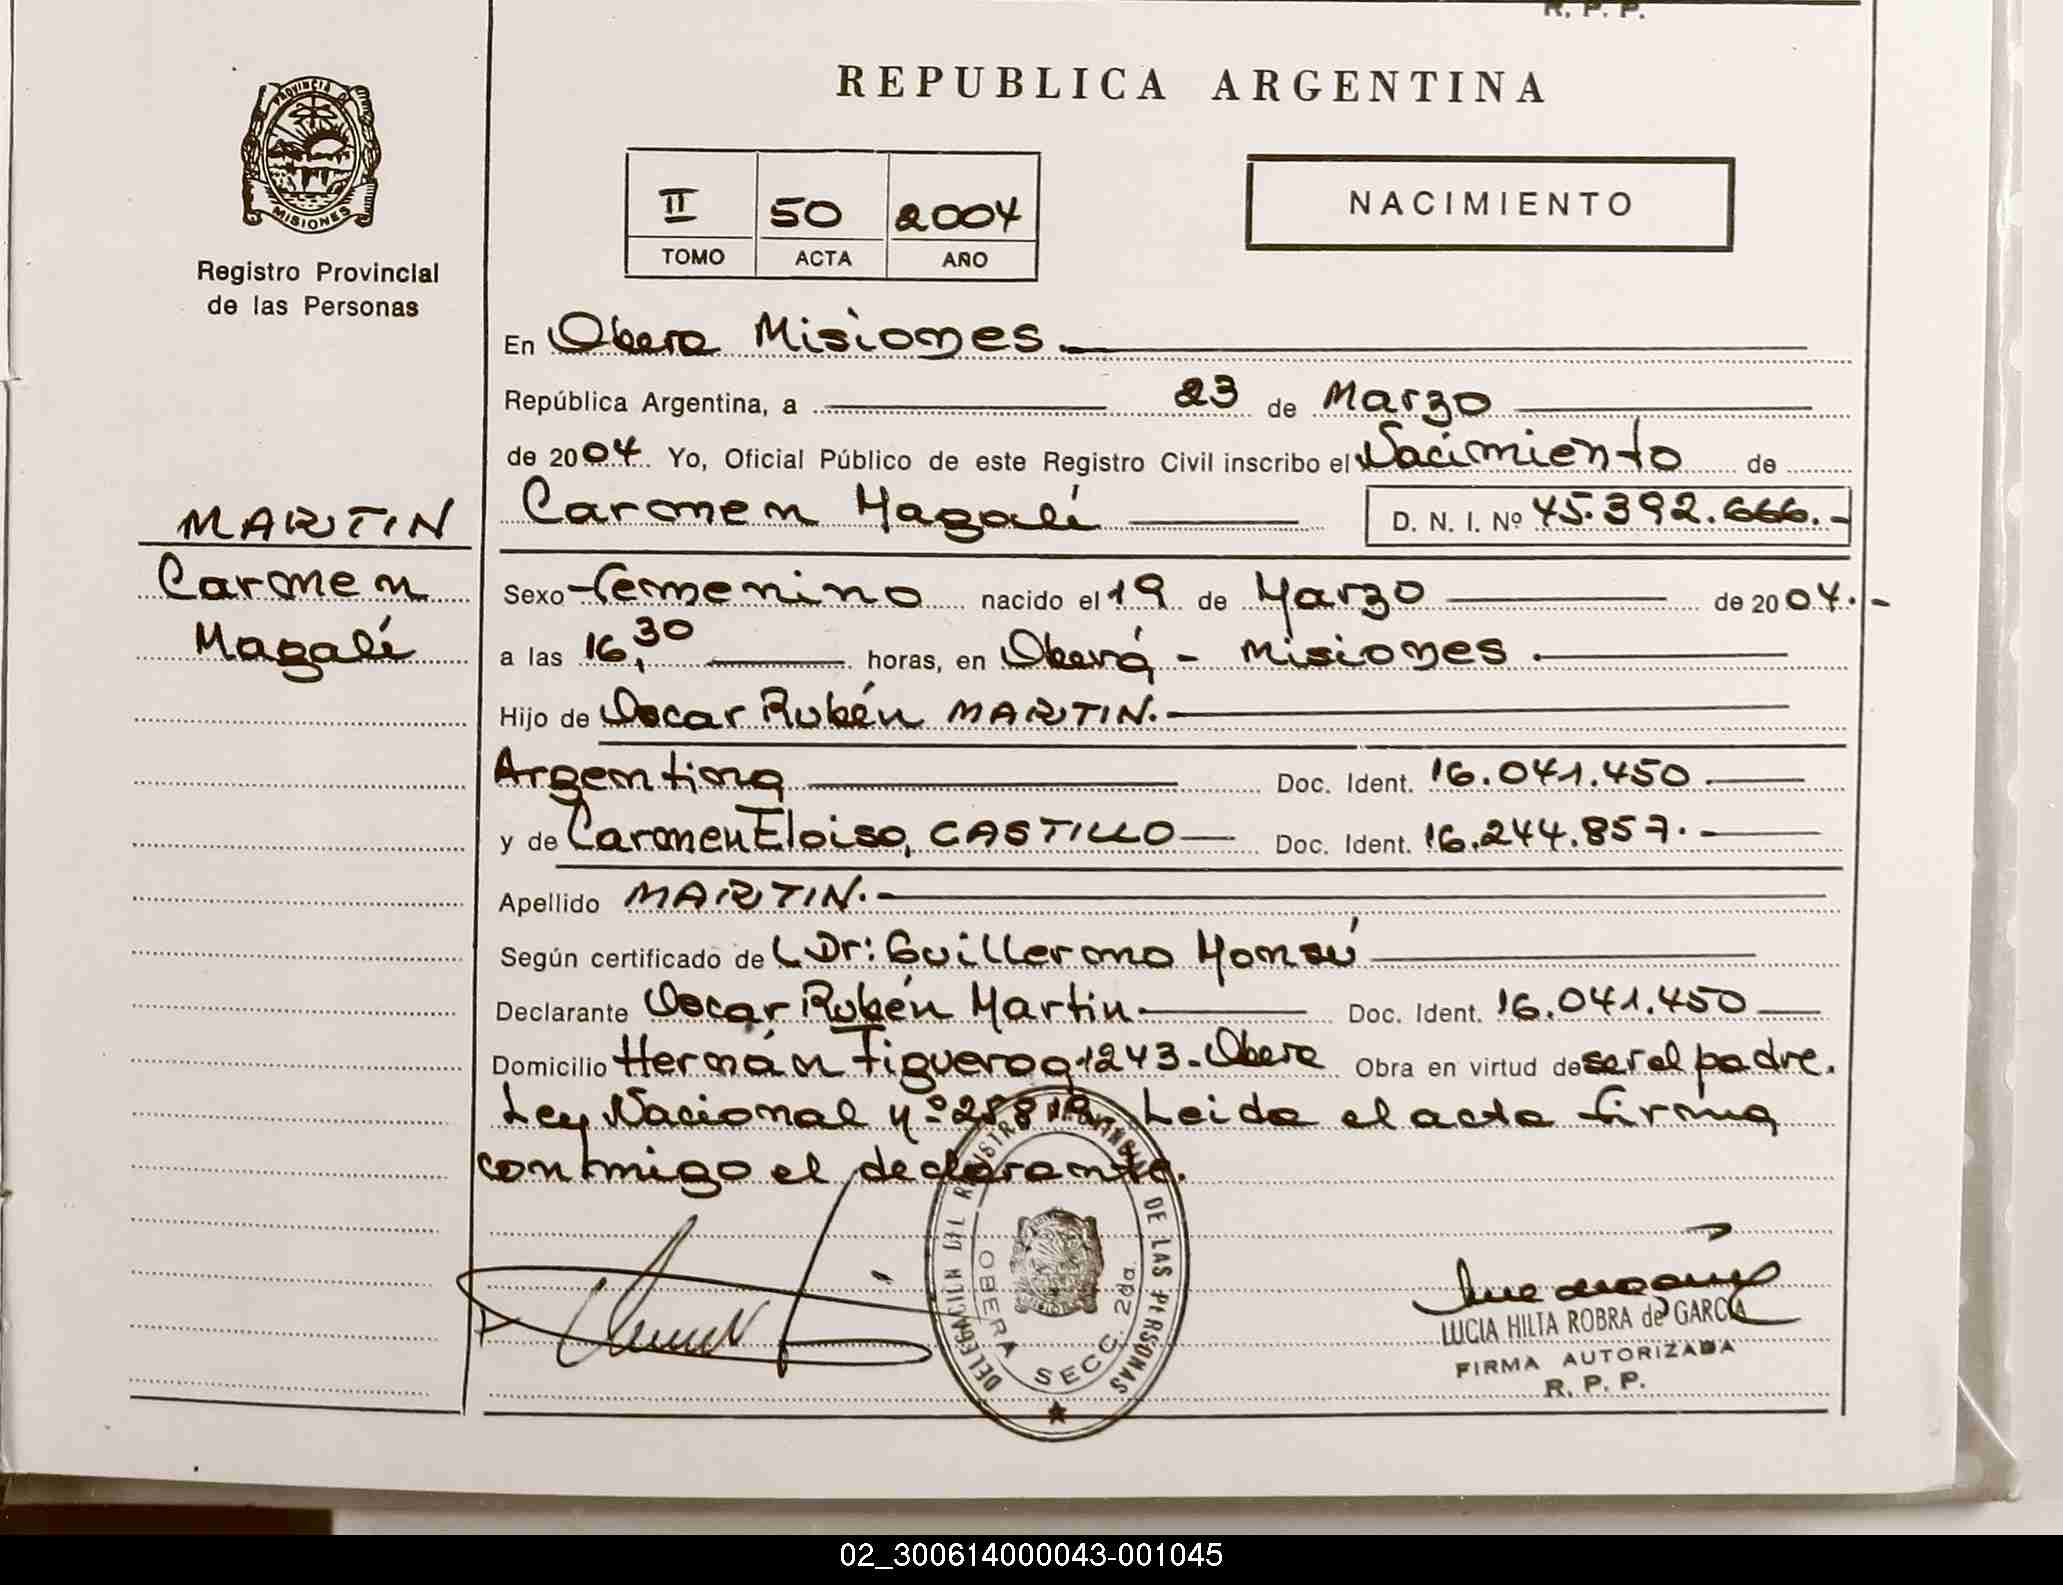 R. P. P.
REPUBLICA ARGENTINA
PROVINCIA DE
MISIONES
Registro Provincial
de las Personas
II 50 2004
TOMO ACTA AÑO
NACIMIENTO
En Obera Misiones
República Argentina, a 23 de Marzo
de 2004. Yo, Oficial Público de este Registro Civil inscribo el Nacimiento de
Carmen Magalí D. N. I. Nº 45.392.666.-
MARTIN
Carmen
Magalí
Sexo femenino nacido el 19 de Marzo de 2004.-
a las 16,30 horas, en Oberá - Misiones.
Hijo de Oscar Rubén MARTIN.
Argentina Doc. Ident. 16.041.450.
y de Carmen Eloisa, CASTILLO Doc. Ident. 16.244.857.
Apellido MARTIN.
Según certificado de L Dr: Guillermo
Declarante Oscar Rubén Martin Doc. Ident. 16.041.450
Domicilio Hernán Figueroa 1243-Obera Obra en virtud de ser el padre.
Ley Nacional nº Leida el acta firma
conmigo el declarante.
DELEGACION DEL REGISTRO PROVINCIAL DE LAS PERSONAS
OBERA SECC. 2da.
LUCIA HILTA ROBRA de GARCIA
FIRMA AUTORIZADA
R. P. P.
02_300614000043-001045